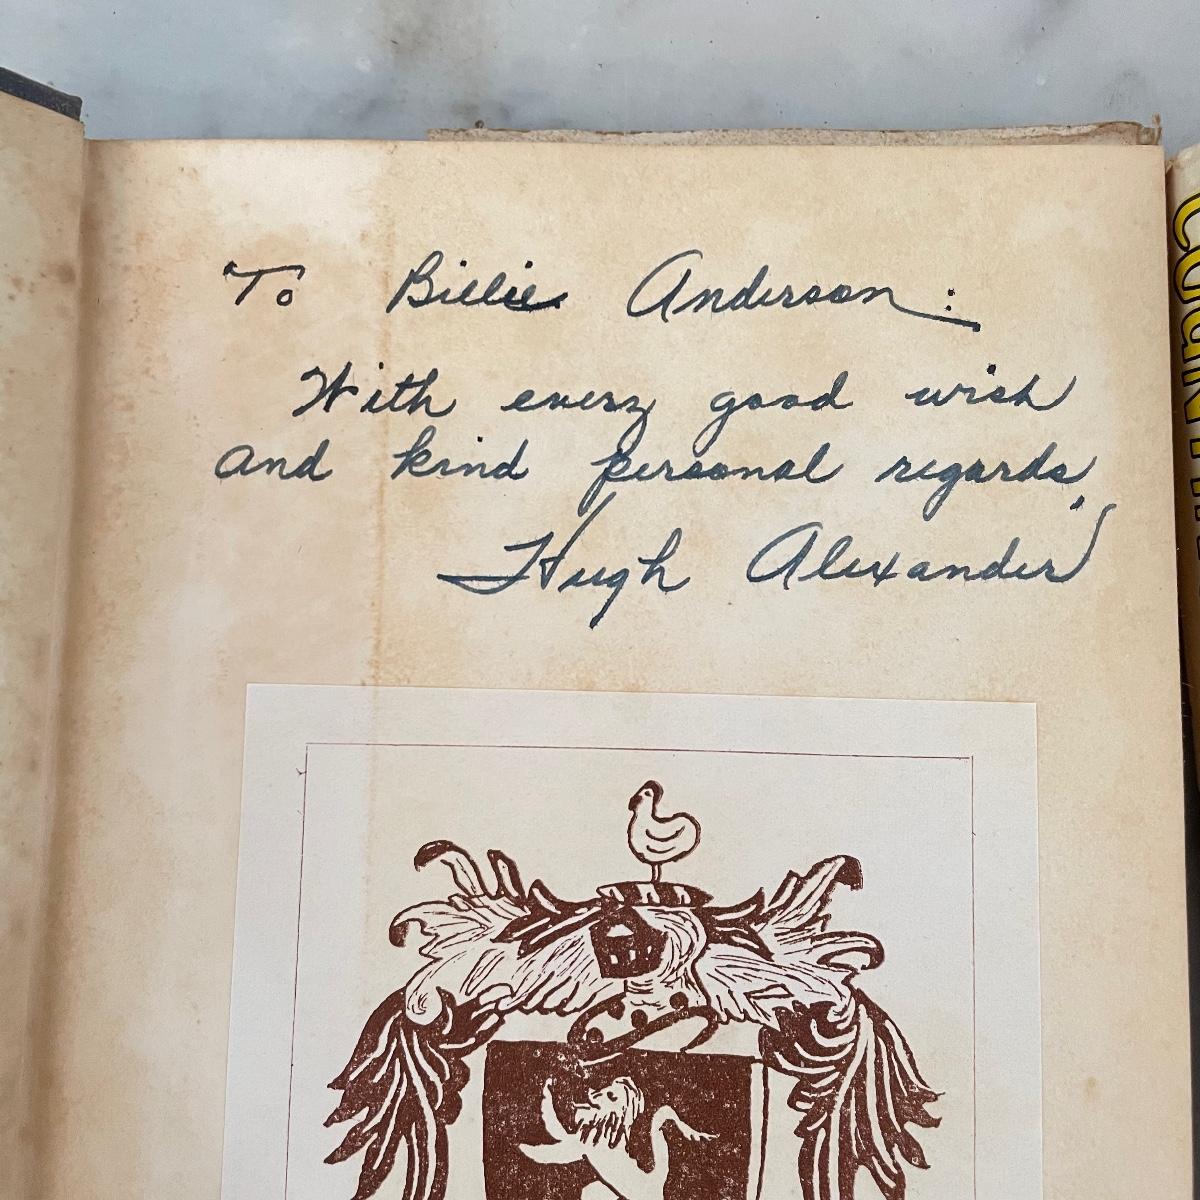 To Billie Anderson:
With every good wish
and kind personal regards,
Hugh Alexander